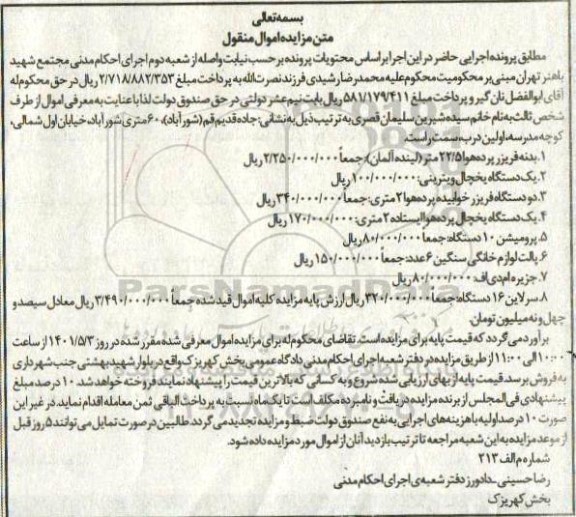 بسمه تعالی
متن مزایده اموال منقول
مطابق پرونده اجرایی حاضر در این اجرا بر اساس محتویات پرونده بر حسب نیابت واصله از شعبه دوم اجرای احکام مدنی مجتمع شهید
باهنر تهران مبنی بر محکومیت محکوم علیه محمدرضا رشیدی فرزند نصرت الله به پرداخت مبلغ ۲/۷۱۸/۸۸۲/۳۵۳ ریال در حق محکوم له
آقای ابوالفضل نان گیر و پرداخت مبلغ ۵۸۷/۱۷۹/۴۱۱ ریال بابت نیم عشر دولتی در حق صندوق دولت لذا با عنایت به معرفی اموال از طرف
شخص ثالث به نام خانم سیده شیرین سلیمان قصری به ترتیب ذیل به نشانی: جاده قدیم قم (شورآباد)، ۶۰ متری شورآباد، خیابان اول شمالی،
کوچه مدرسه، اولین درب سمت راست.
۱. بدنه فریزر پرده هوا ۲۲/۵ متر (لینده آلمان): جمعاً ۲/۲۵۰/۰۰۰/۰۰۰ ریال
۲. یک دستگاه یخچال ویترینی: ۱۰۰/۰۰۰/۰۰۰ ریال
۳. دو دستگاه فریزر خوابیده پرده هوا ۲ متری: جمعاً ۳۴۰/۰۰۰/۰۰۰ ریال
۴. یک دستگاه یخچال پرده هوا ایستاده ۲ متری: ۱۷۰/۰۰۰/۰۰۰ ریال
۵. پرومیشن ۱۰ دستگاه: جمعاً ۸۰/۰۰۰/۰۰۰ ریال
۶. پالت لوازم خانگی سنگین ۶ عدد: جمعاً ۱۵۰/۰۰۰/۰۰۰ ریال
۷. جزیره ام دی اف: ۸۰/۰۰۰/۰۰۰ ریال
۸. سرلاین ۱۶ دستگاه: جمعاً ۳۲۰/۰۰۰/۰۰۰ ریال ارزش پایه مزایده کلیه اموال قید شده جمعاً ۳/۴۹۰/۰۰۰/۰۰۰ ریال معادل سیصد و
چهل و نه میلیون تومان.
برآورد می گردد که قیمت پایه برای مزایده است. تقاضای محکوم له برای مزایده اموال معرفی شده مقرر شده در روز ۱۴۰۱/۵/۳ از ساعت
۱۰:۰۰ الی ۱۱:۰۰ از طریق مزایده در دفتر شعبه اجرای احکام مدنی دادگاه عمومی بخش کهریزک واقع در بلوار شهید بهشتی جنب شهرداری
به فروش برسد. قیمت پایه از بهای ارزیابی شده شروع و به کسانی که بالاترین قیمت را پیشنهاد نمایند فروخته خواهد شد. ۱۰ درصد مبلغ
پیشنهادی فی المجلس از برنده مزایده دریافت و نامبرده مکلف است تا یک ماه نسبت به پرداخت الباقی ثمن معامله اقدام نماید. در غیر این
صورت ۱۰ درصد اولیه با هزینه های اجرایی به نفع صندوق دولت ضبط و مزایده تجدید می گردد. طالبین در صورت تمایل می توانند ۵ روز قبل
از موعد مزایده به این شعبه مراجعه تا ترتیب بازدید آنان از اموال مورد مزایده داده شود.
شماره م الف ۲۱۳
رضا حسینی - دادورز دفتر شعبه ی اجرای احکام مدنی
بخش کهریزک
ParsNamadData